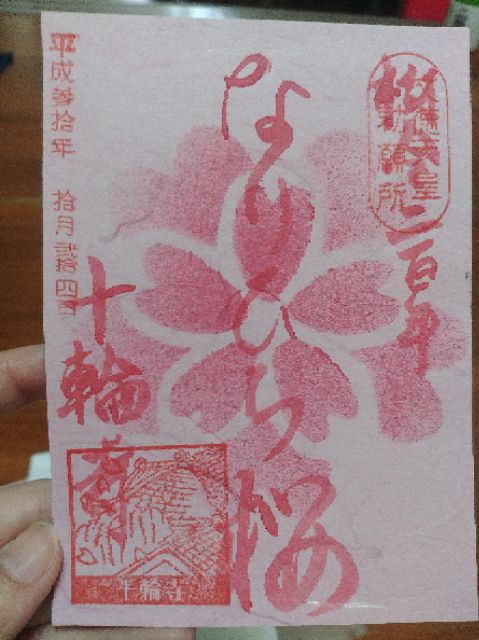 文徳天皇
勅願所
樹令二百年
なりひら桜
十輪寺
平成参拾年 拾月弐拾四日
十輪寺